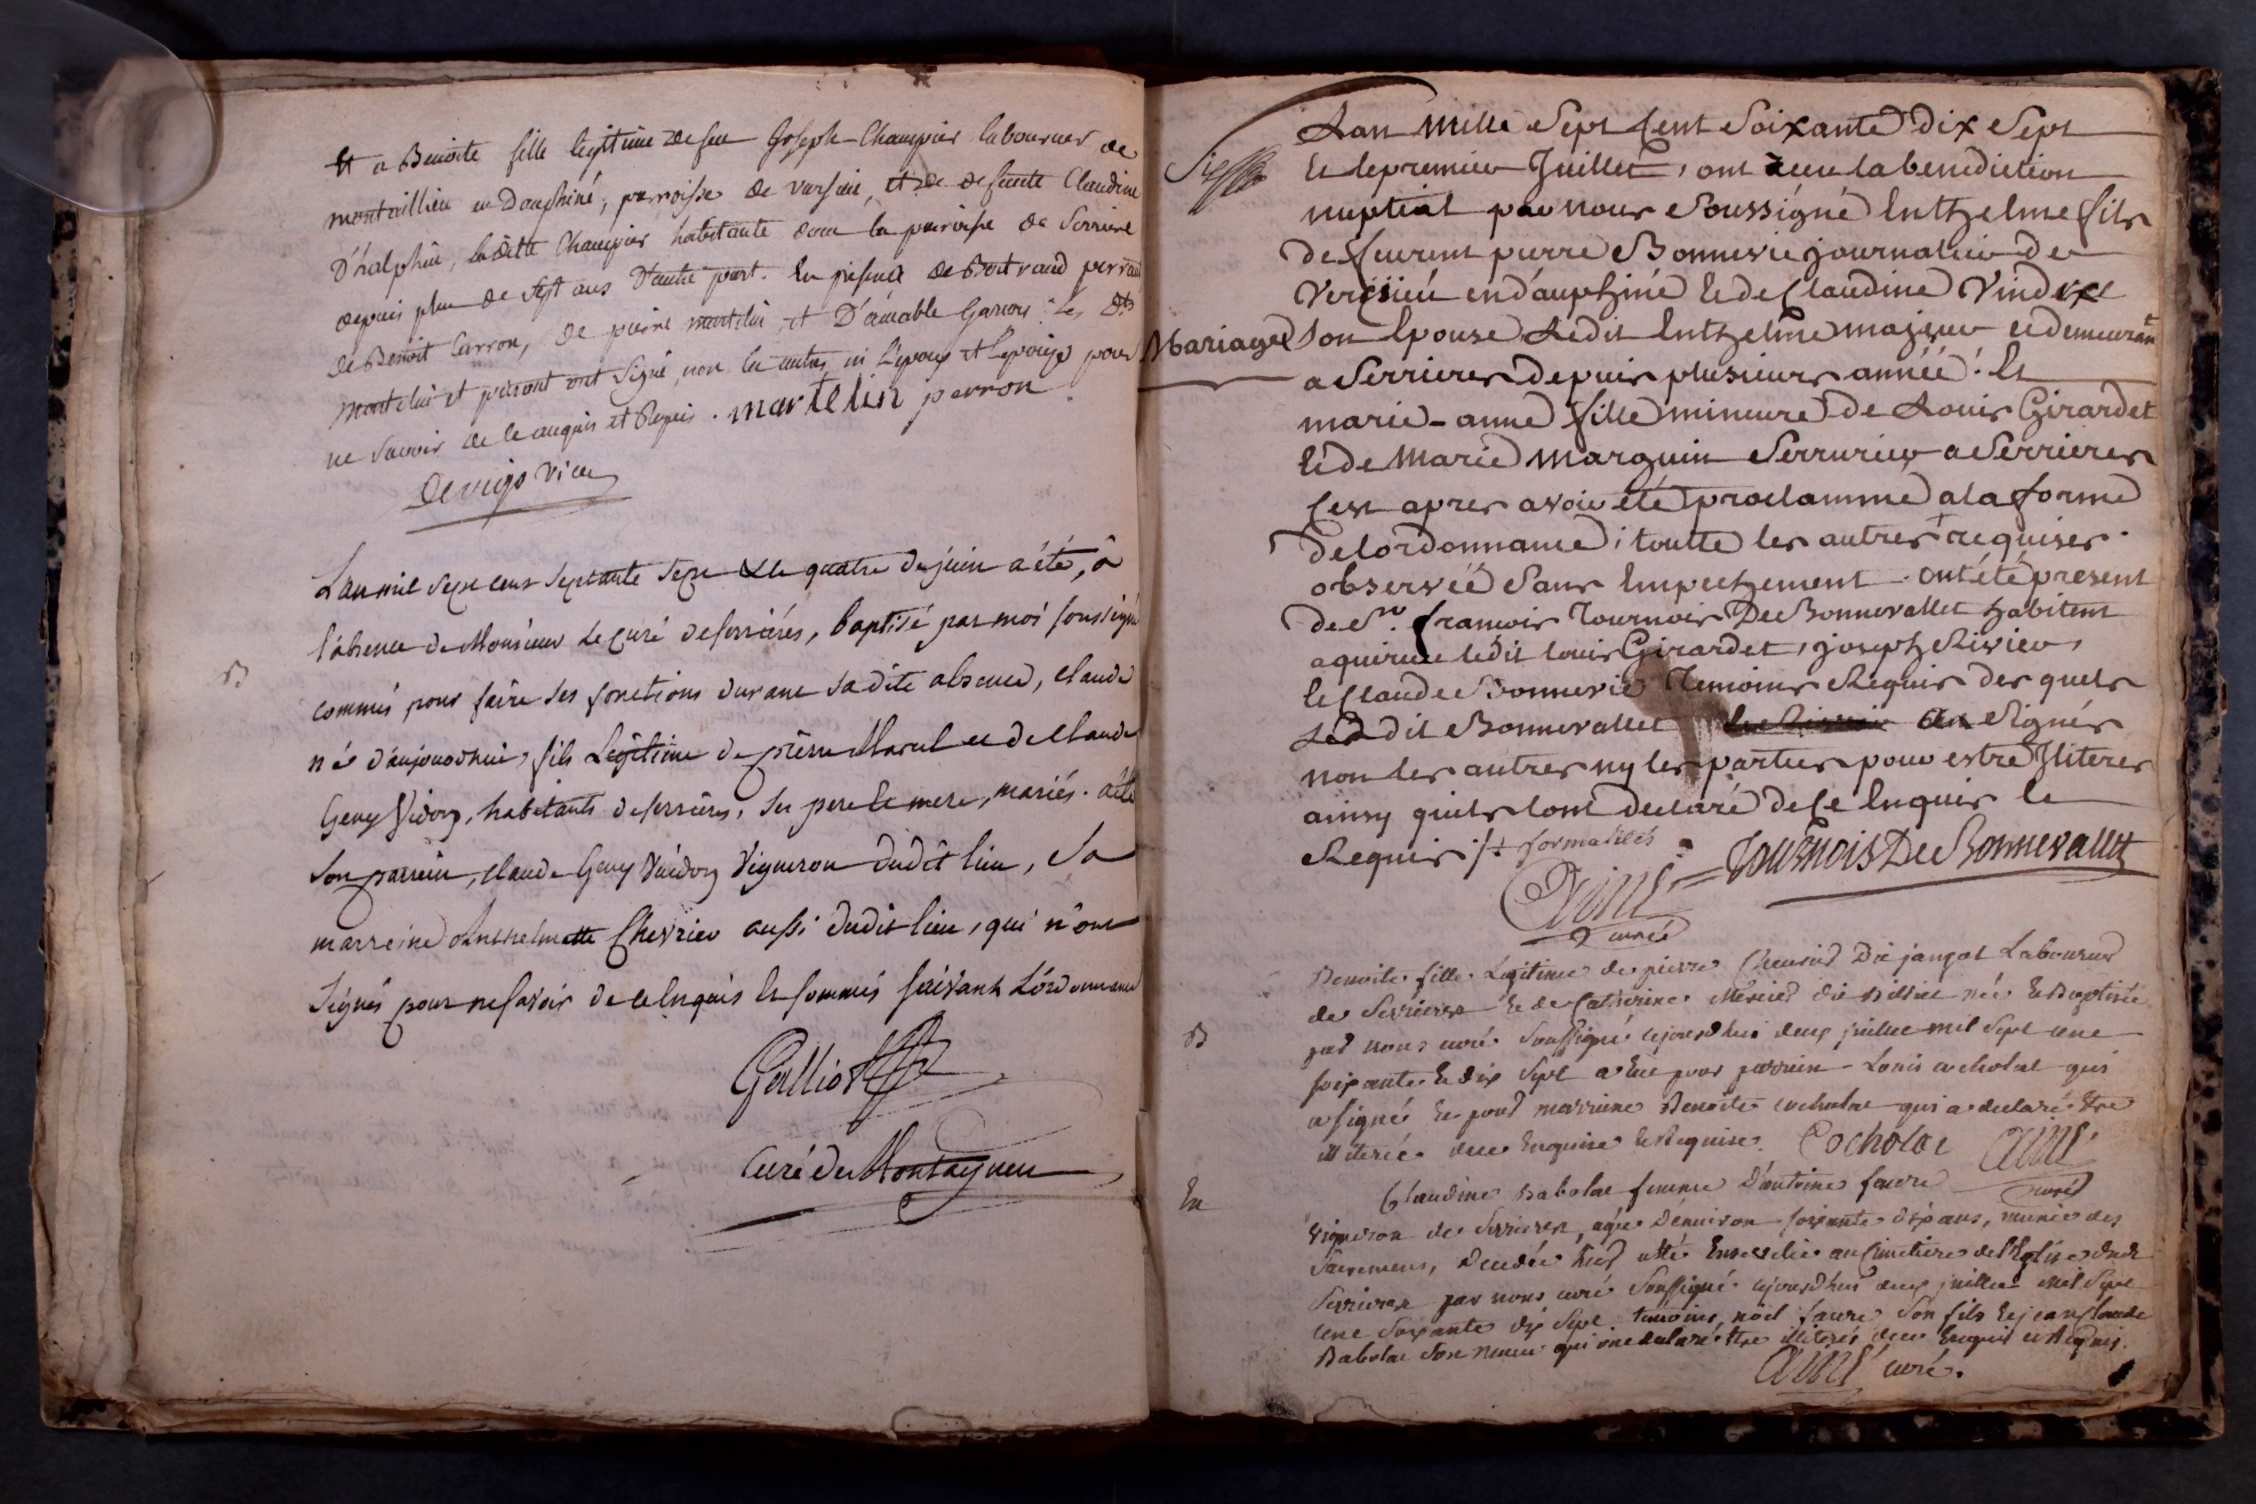 Et a Benoite fille legitime de feu Joseph Champier laboureur de
montaillieu en Dauphiné, parroisse de varsiue, et de defunte Claudine
D'halphin, la ditte Champier habitante dans la parroisse de Serriere
depuis plus de sept ans D'autre part. En presence de Bertrand perront
de Benoit Carron, de pierre martelin, et D'aimable Garron. Les dts
martelin et perront ont signé, non les autres ni l'epoux et l'epouse pour
ne savoir de ce enquis et Requis. martelin perron
Devigo Vice
L'an mil sept cent septante sept & le quatre de juin a été, à
l'absence de Monsieur le curé de serriéres, baptisé par moi soussigné
commis pour faire ses fonctions durant sa dite absence, claude
né d'aujourdhui, fils Legitime de pierre Marul et de claude
Geny Vidory, habitants de serriéres, ses pere & mere, mariés. a été
son parrein, claude Geny Vuidory Vigneron dudit lieu, sa
marreine Anthelmette Chevrier aussi dudit lieu, qui n'ont
signés pour ne savoir de ce enquis et sommés suivant L'ordonnance
B
Galliot
Curé de Montagneu
Lan mille Sept Cent Soixante Dix Sept
Et le premier Juillet, ont recu la benediction
nuptial par nous Soussigné Enthelme fils
de feurent pierre Bonnevie journalier de
Vercsieu en dauphiné et de Claudine Vindry
Mariage
son Epouse Ledit Enthelme majeur et demeurant
a Serrieres depuis plusieurs année. Et
marie-anne fille mineure de Louis Girardet
et de Marie Marguin Serrurier a Serrieres
Cest apres avoir été proclamme a la forme
de lordonnance; toutte les autres + requises.
observéé Sans Empechement. ont été present
de Sr. francois Tournois De Bonnevallet habitent
a quirieu ledit louis Girardet, joseph Rivier,
et Claude Bonnevie Temoins Requis des quels
Led dit Bonnevallet a Signés
non les autres ny les parties pour estre Iliteres
ainsy quils lont declaré de Ce Enquis et
Requis /. + formalités
Tournois De Bonnevallet
Aimé
curé
B
Benoite fille Legitime de pierre Chevrier Dit jangot Laboureur
de Serrieres et de Catherine Mérier dit Billiet née et Baptisée
par nous curé soussigné cejourdhui deux juillet mil Sept cent
soixante et dix sept a eut pour parrein Louis cocholat qui
a signé et pour marreine Benoite cocholat qui a declaré être
illiterée dece Enquise et Requise. Cocholat Aimé
curé
En
Claudine Babolat femme D'antoine favre
vigneron de Serrieres, agée Denviron soixante dix ans, munie des
Sacremens, Decedée hier a été Ensevelie au Cimetiere de l'Eglise dudt
Serrieres par nous curé soussigné cejourdhui deux juillet mil Sept
cent soixante dix Sept temoins, noël favre Son fils et jean Claude
Babolat Son neveu qui ont declaré être illiterés dece Enquis et Requis.
Aimé curé.